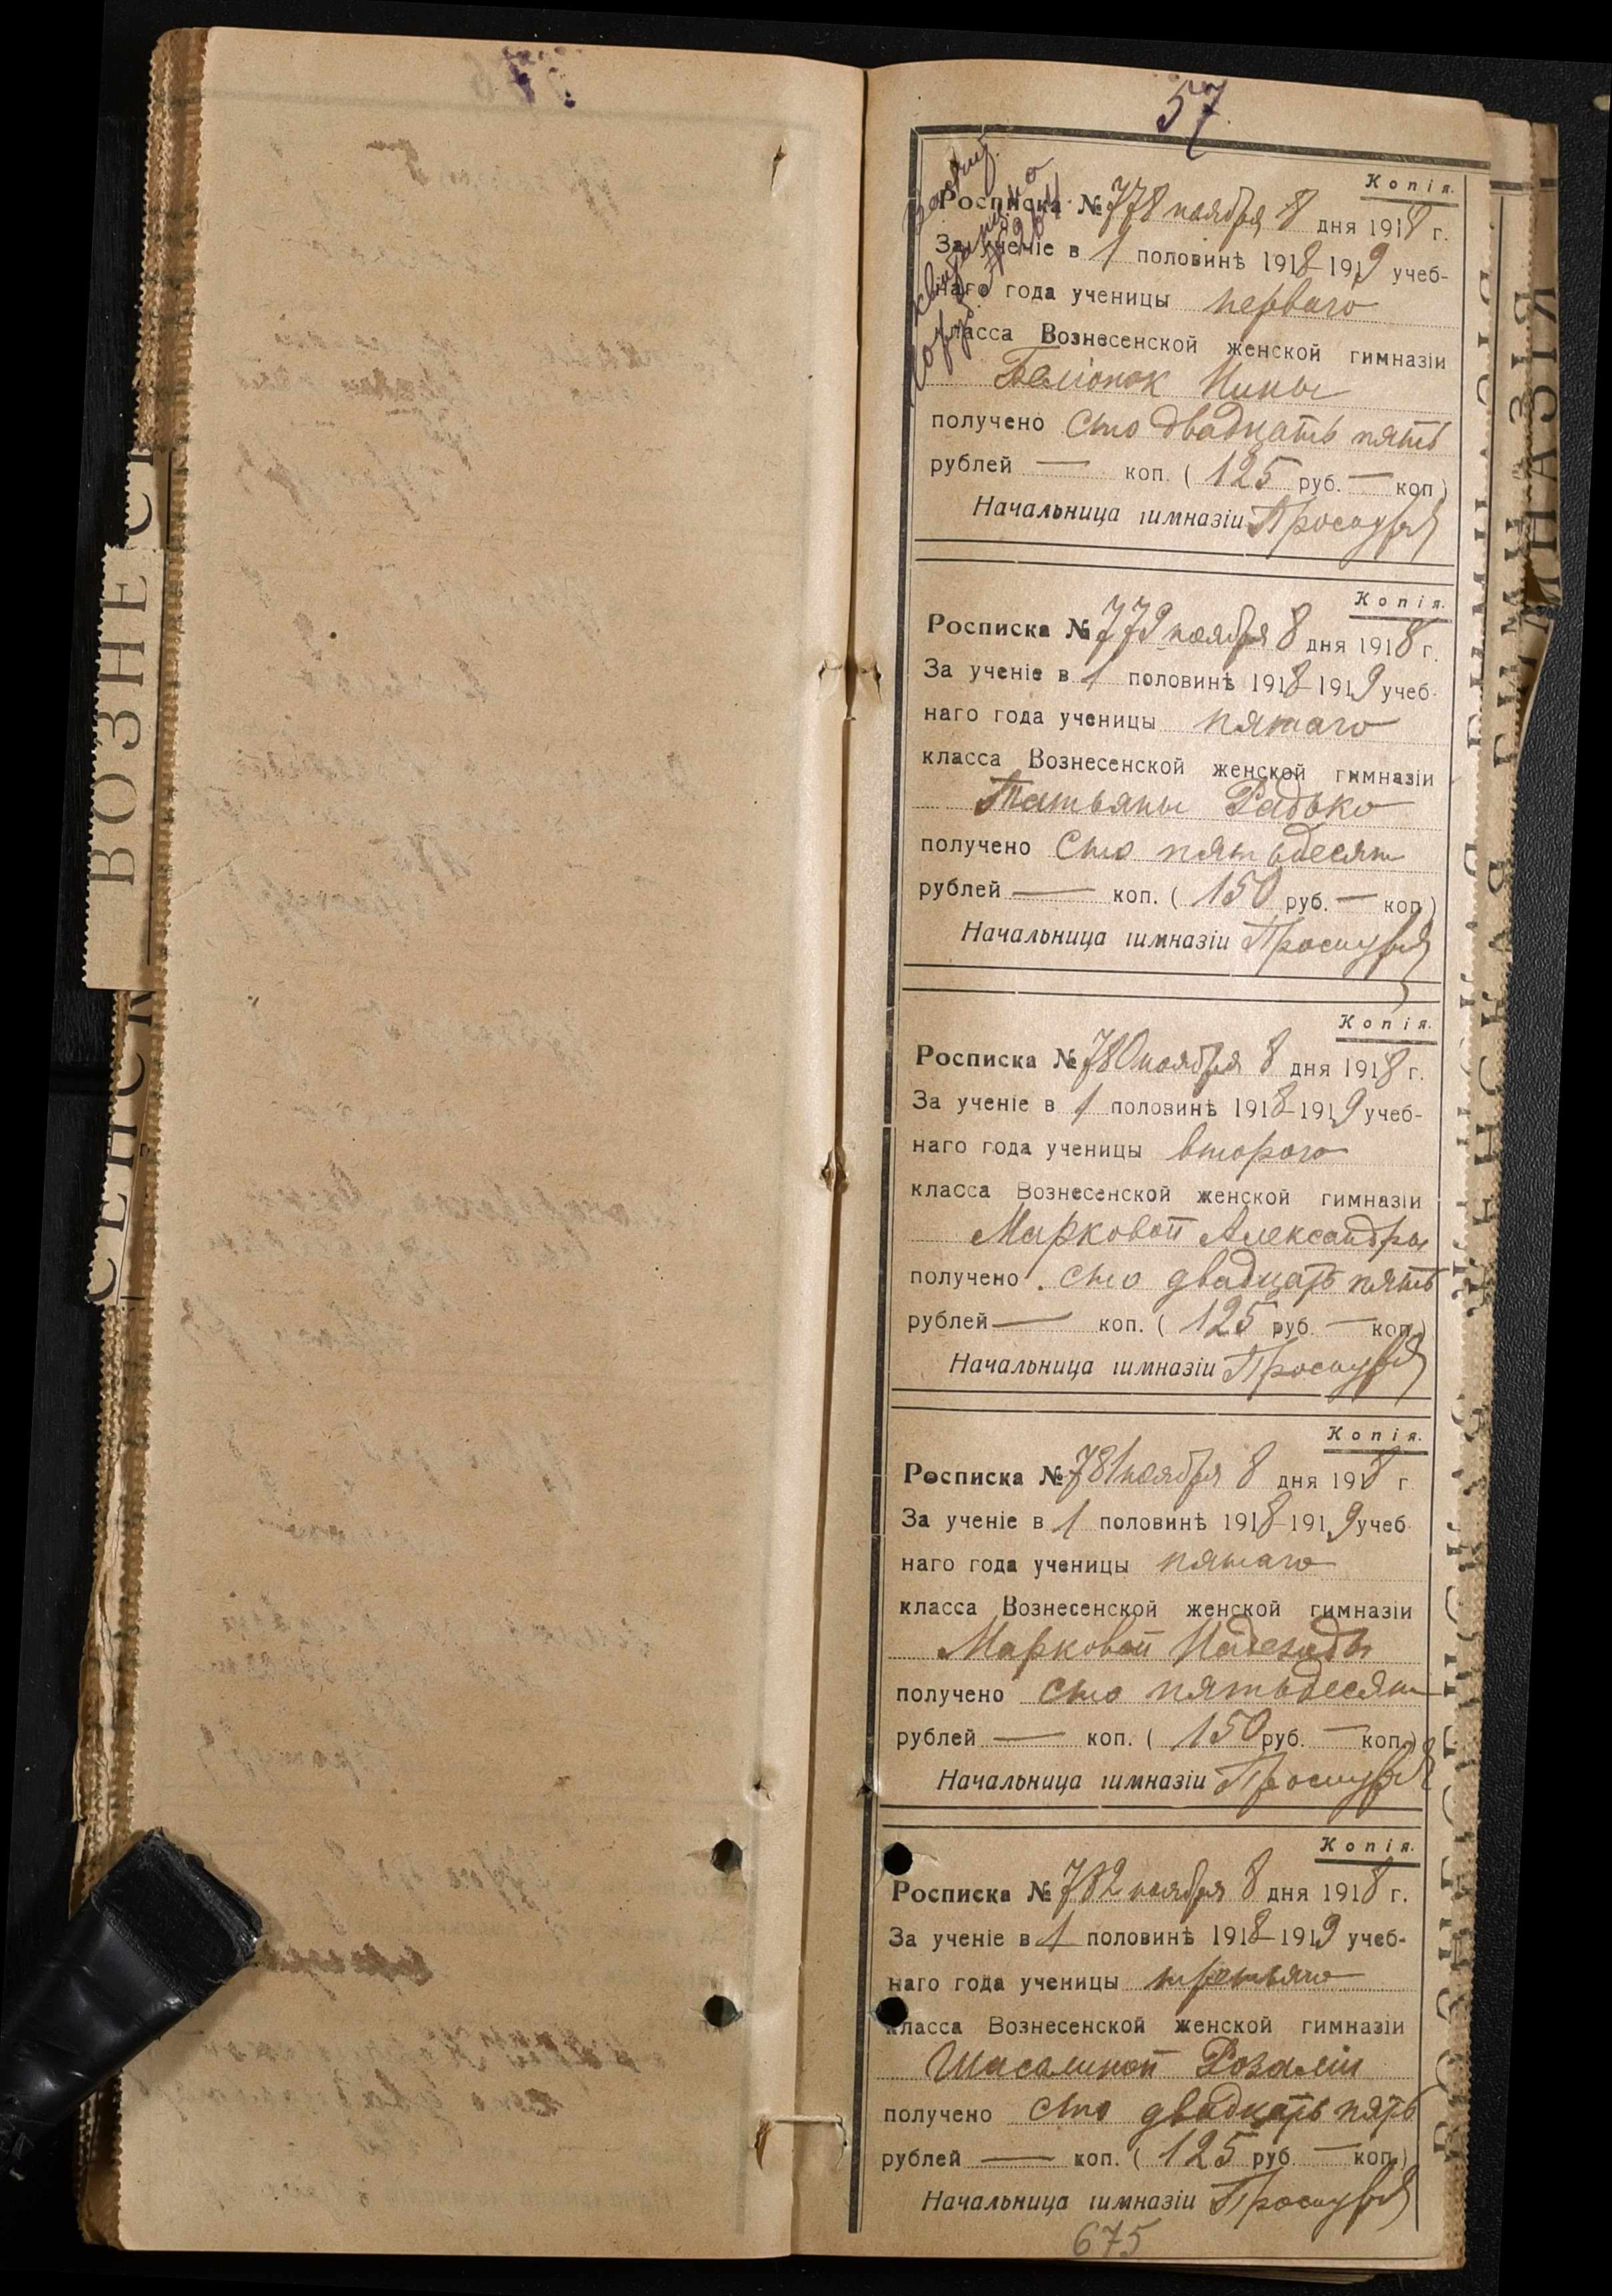 57
Копія.
Росписка № 778 ноября 8 дня 1918 г.
За ученіе в 1 половинѣ 1918-1919 учеб-
наго года ученицы перваго
класса Вознесенской женской гимназіи
Нины
получено сто двадцать пять
рублей — коп. (125 руб. — коп)
Начальница гимназіи
Копія.
Росписка № 779 ноября 8 дня 1918 г.
За ученіе в 1 половинѣ 1918-1919 учеб-
наго года ученицы пятаго
класса Вознесенской женской гимназіи
Татьяны Радько
получено сто пятьдесят
рублей — коп. (150 руб. — коп)
Начальница гимназіи
Копія.
Росписка № 780 ноября 8 дня 1918 г.
За ученіе в 1 половинѣ 1918-1919 учеб-
наго года ученицы второго
класса Вознесенской женской гимназіи
Марковой Александры
получено сто двадцать пять
рублей — коп. (125 руб. — коп.)
Начальница гимназіи
Копія.
Росписка № 781 ноября 8 дня 1918 г
За ученіе в 1 половинѣ 1918-1919 учеб
наго года ученицы пятаго
класса Вознесенской женской гимназіи
Марковой Надежды
получено сто пятьдесят
рублей — коп. (150 руб. — коп.)
Начальница гимназіи
Копія.
Росписка № 782 ноября 8 дня 1918 г.
За ученіе в 1 половинѣ 1918-1919 учеб-
наго года ученицы третьяго
класса Вознесенской женской гимназіи
Розаліи
получено сто двадцать пять
рублей — коп. (125 руб — коп.)
Начальница гимназіи
675
ВОЗНЕС
СЕНСК